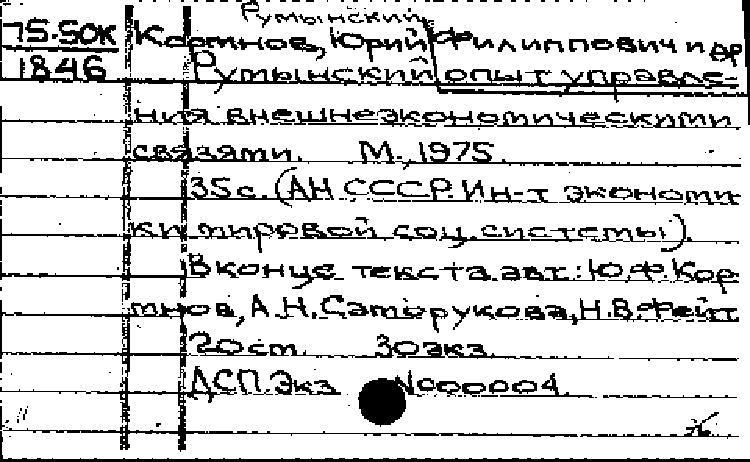 Румынский
75-50К Кормнов, Юрий Филиппович и др
1846 Румынский опыт управле-
ния внешнеэкономическими
связями. М., 1975.
35с. (АН СССР. Ин-т экономи-
ки мировой соц. системы).
В конце текста авт.: Ю.Ф. Кор-
мнов, А.Н. Сатырукова, Н.В. Фейт
20см. 30экз.
ДСП. Экз №00004